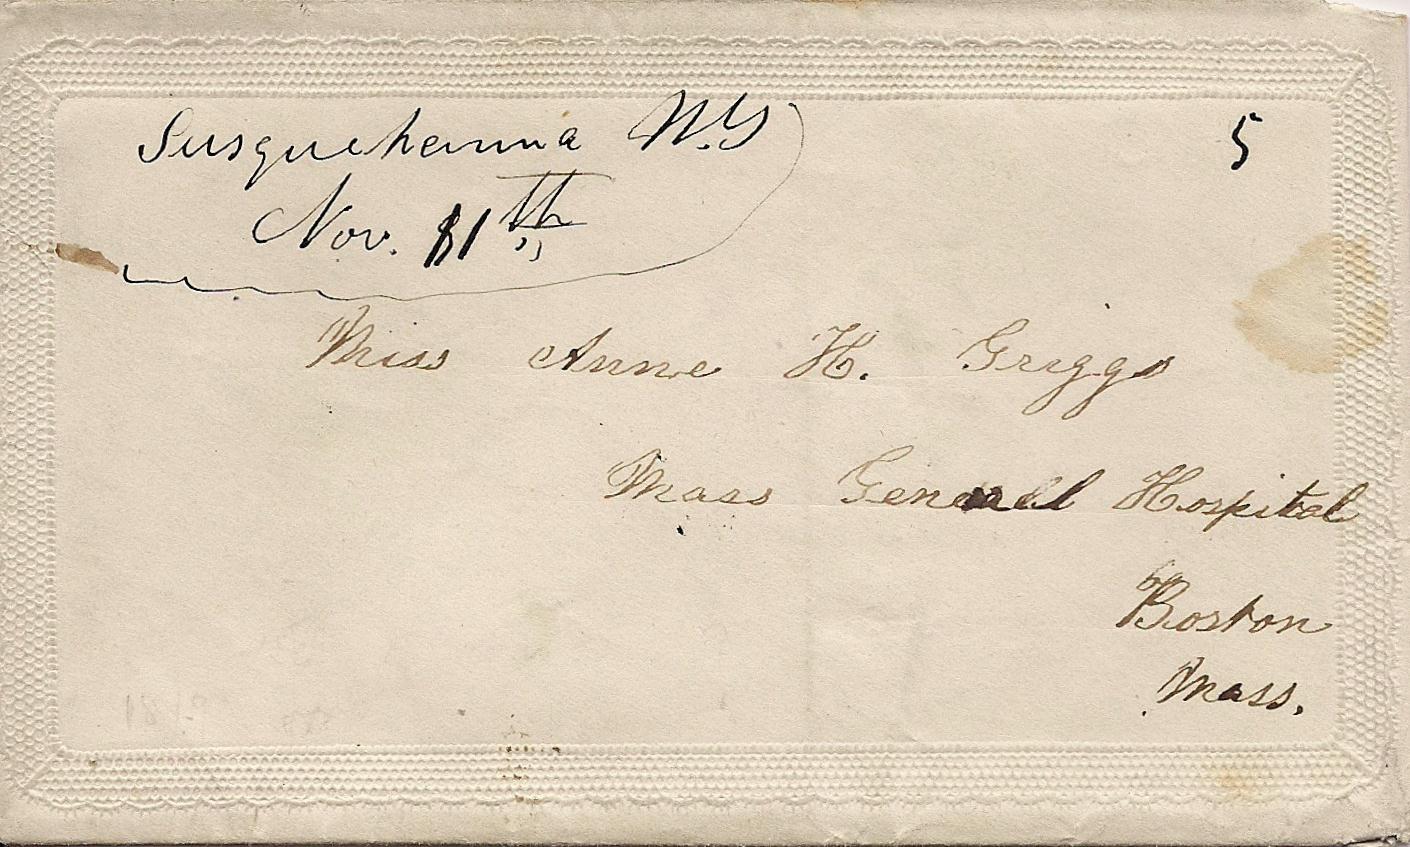 Susquehanna N.Y 5
Nov. 11th
Miss Anne H. Griggs
Mass General Hospital
Boston
Mass.